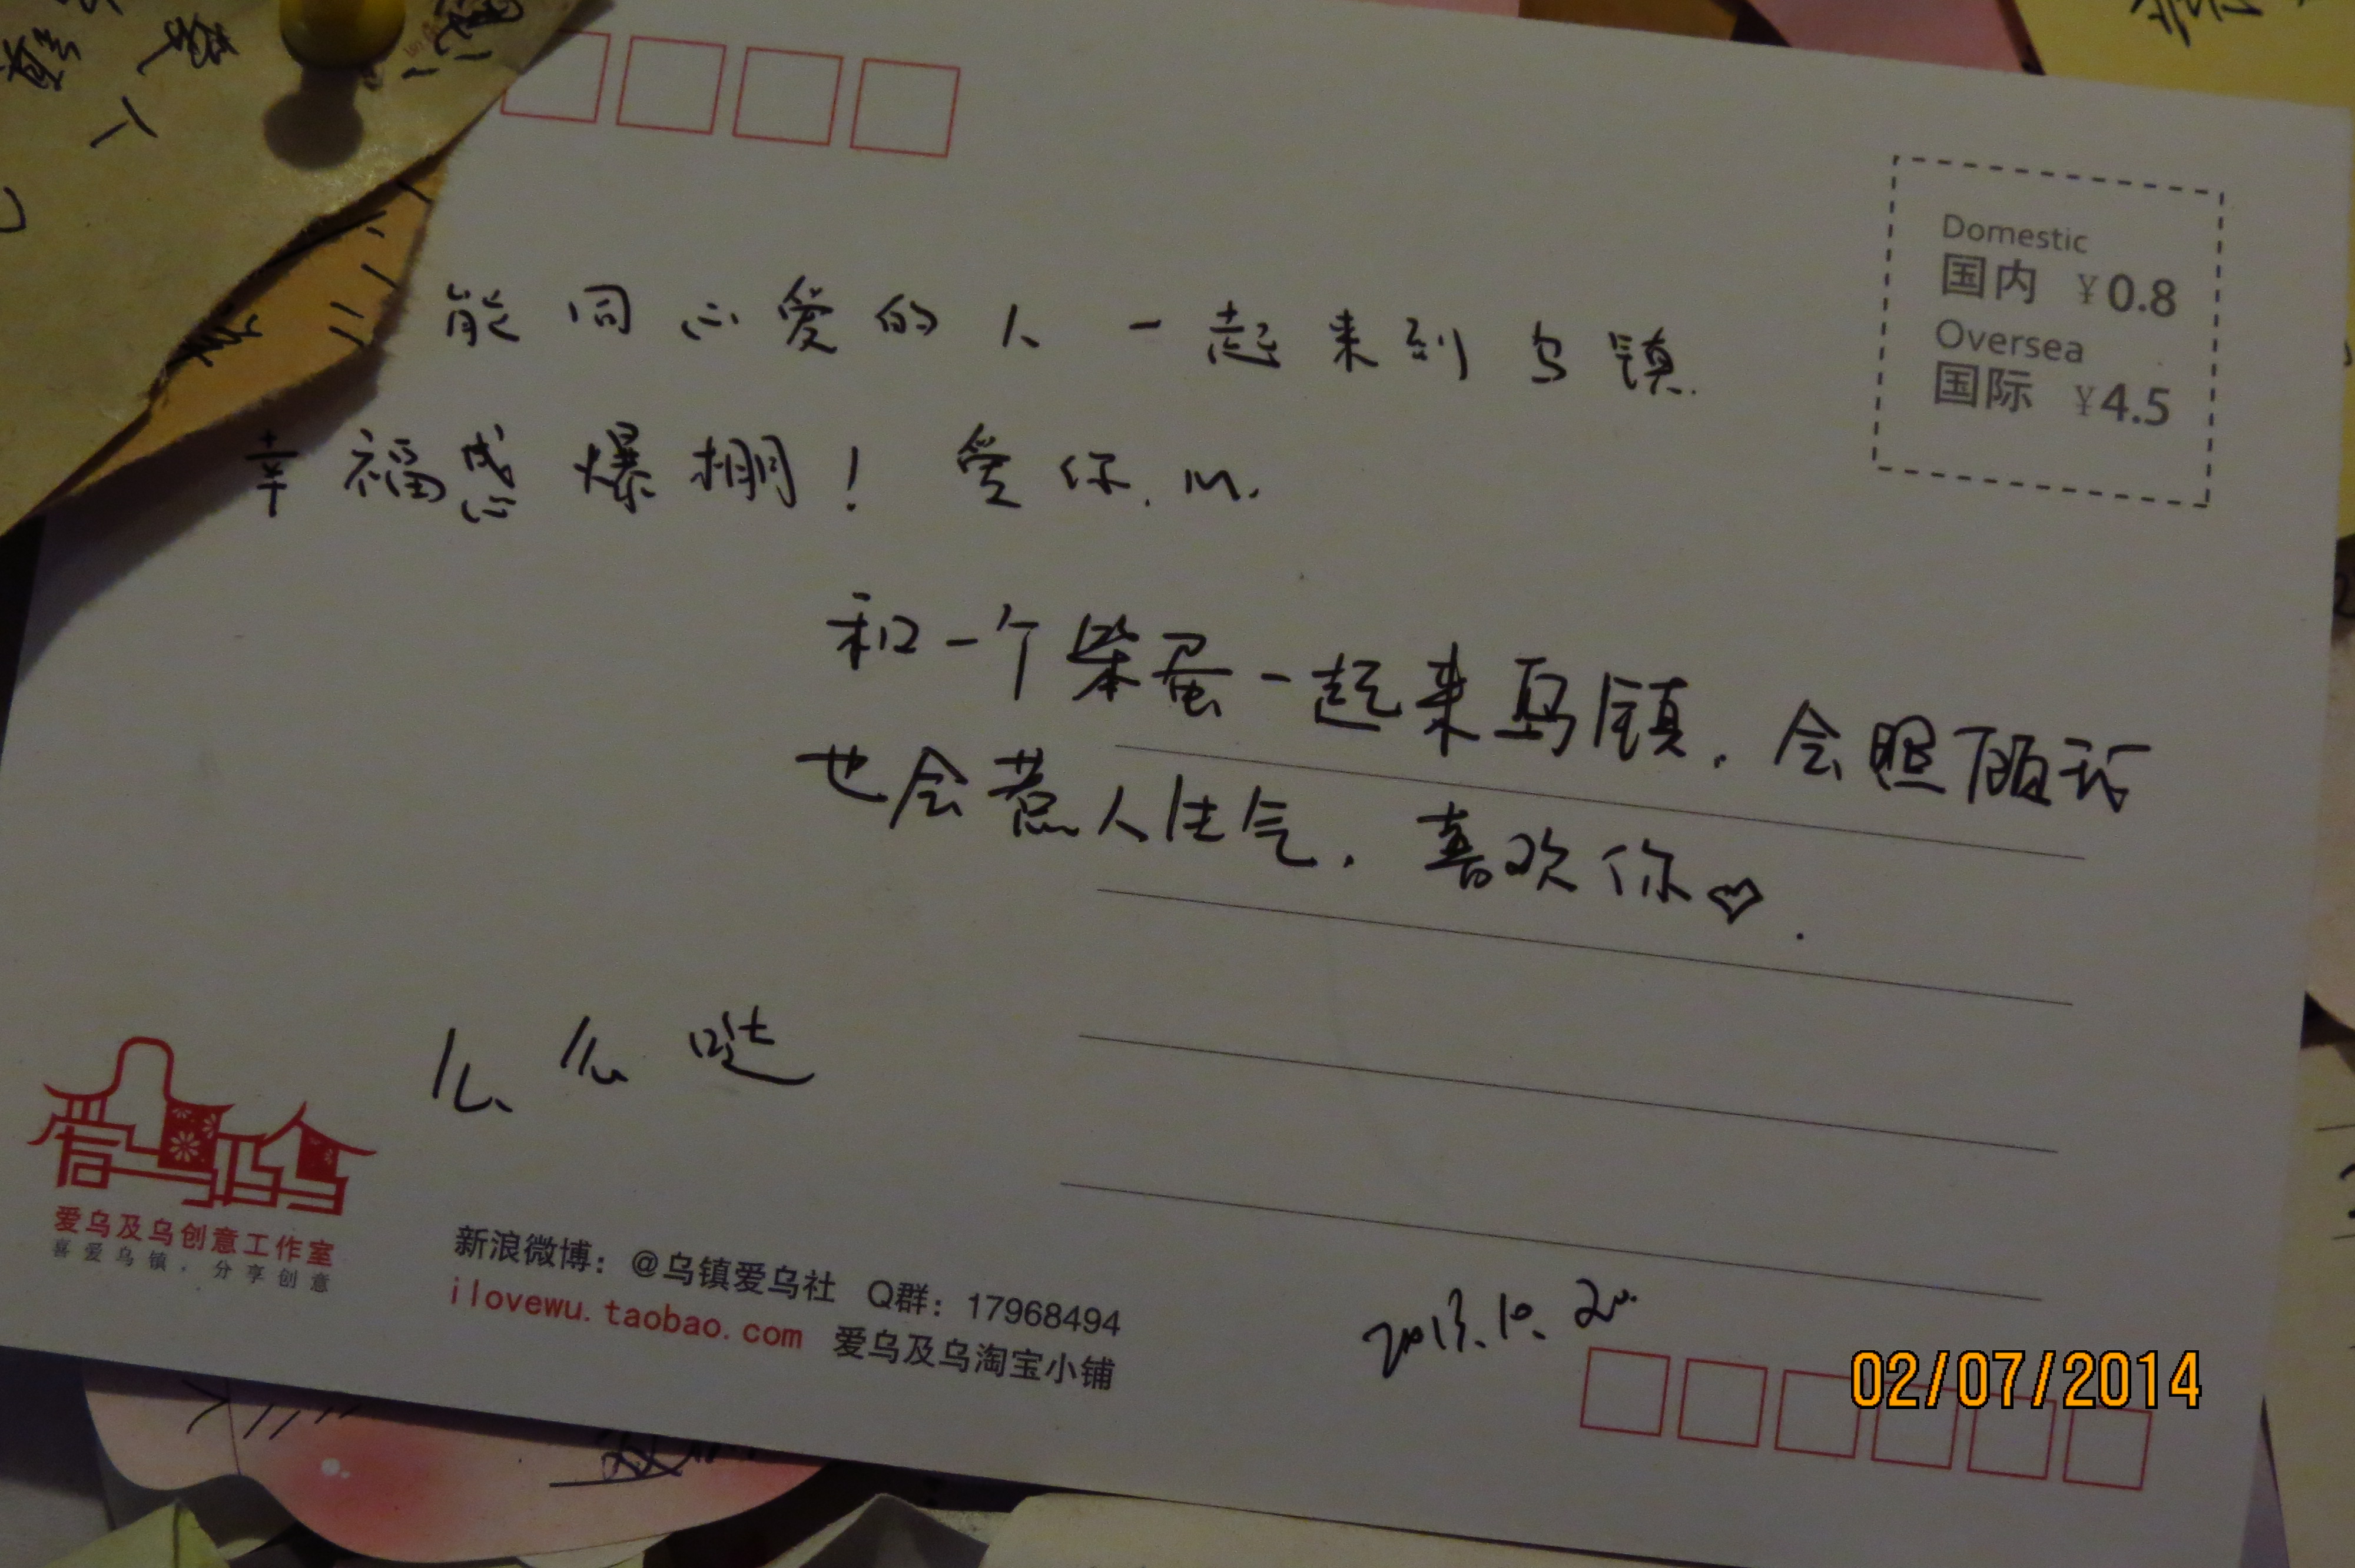 Domestic
国内 ¥0.8
Oversea
国际 ¥4.5
能同心爱的人一起来到乌镇.
幸福感爆棚！爱你.M.
和一个柴蛋一起来乌镇.会照顾我
也会惹人生气.喜欢你♡.
么么哒
爱乌及乌创意工作室
喜爱乌镇，分享创意
新浪微博：@乌镇爱乌社 Q群：17968494
ilovewu.taobao.com 爱乌及乌淘宝小铺
2013.10.20.
02/07/2014